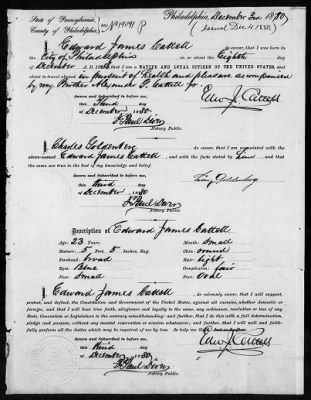 State of Pennsylvania,
County of Philadelphia,
Philadelphia, December 3rd 1880
(issued Dec. 4. 1880.)
I Edward James Cattell do swear, that I was born in the
City of Philadelphia on or about the Eighth day
of December A. D.
that I am a NATIVE AND LOYAL CITIZEN OF THE UNITED STATES, and
about to travel abroad in pursuit of health and pleasure accompanied
by my Brother Alexander G. Cattell Jr
Sworn and Subscribed to before me,
this Third day
of December 1880
Edw J. Cattell
F Paul Dorn
Notary Public.
I Charles Goldenberg do swear, that I am acquainted with the
above-named Edward James Cattell, and with the facts stated by him and that the same
are true to the best of my knowledge and belief.
Sworn and Subscribed to before me,
this third day
of December 1880
Goldenberg
F Paul Dorn
Notary Public.
Description of Edward James Cattell
Age: 23 Years.
Mouth: Small
Stature: 5 Feet 5 Inches, Eng.
Chin: round
Forehead: broad
Hair: light
Eyes: Blue
Complexion: fair
Nose: Small
Face: Oval
I Edward James Cattell, do solemnly swear, that I will support,
protect, and defend, the Constitution and Government of the United States, against all enemies, whether domestic or
foreign, and that I will bear true faith, allegiance and loyalty to the same, any ordinance, resolution or law of any
State, Convention or Legislature to the contrary notwithstanding; and further, that I do this with a full determination,
pledge and purpose, without any mental reservation or evasion whatsoever; and further, that I will well and faithfully
perform all the duties which may be required of me by law. So help me God.
Sworn and Subscribed to before me,
this third day
of December 1880
Edw J. Cattell
F Paul Dorn
Notary Public.